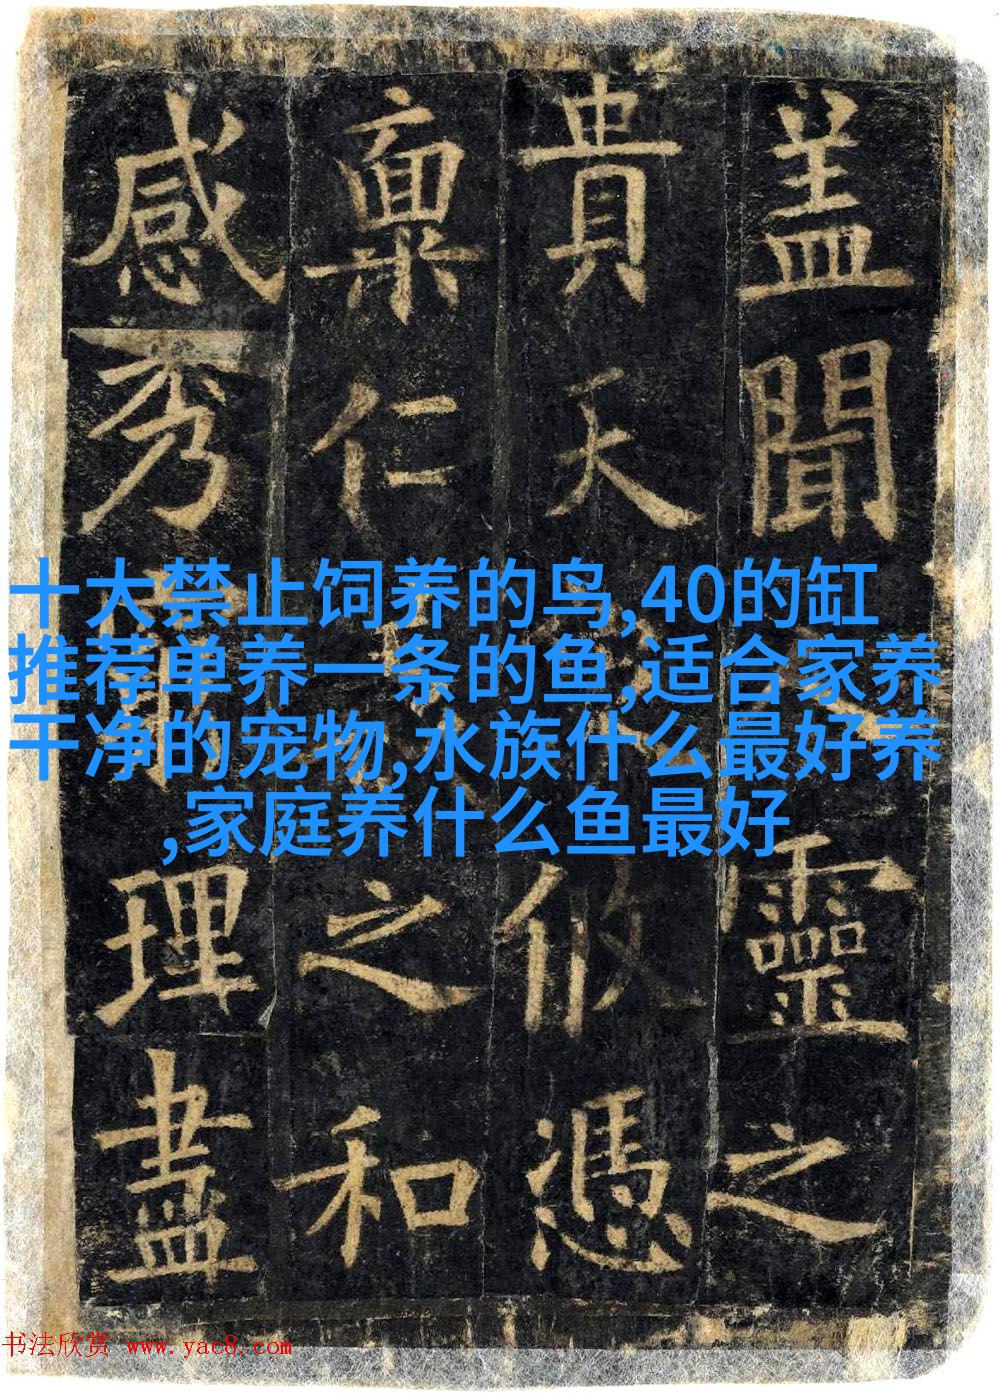 盖聞靈之
貴天攸憑
稟仁之和
感秀理盡
十大禁止饲养的鸟,40的缸
推荐单养一条的鱼,适合家养
干净的宠物,水族什么最好养
,家庭养什么鱼最好
书法欣赏 www.yac8.com